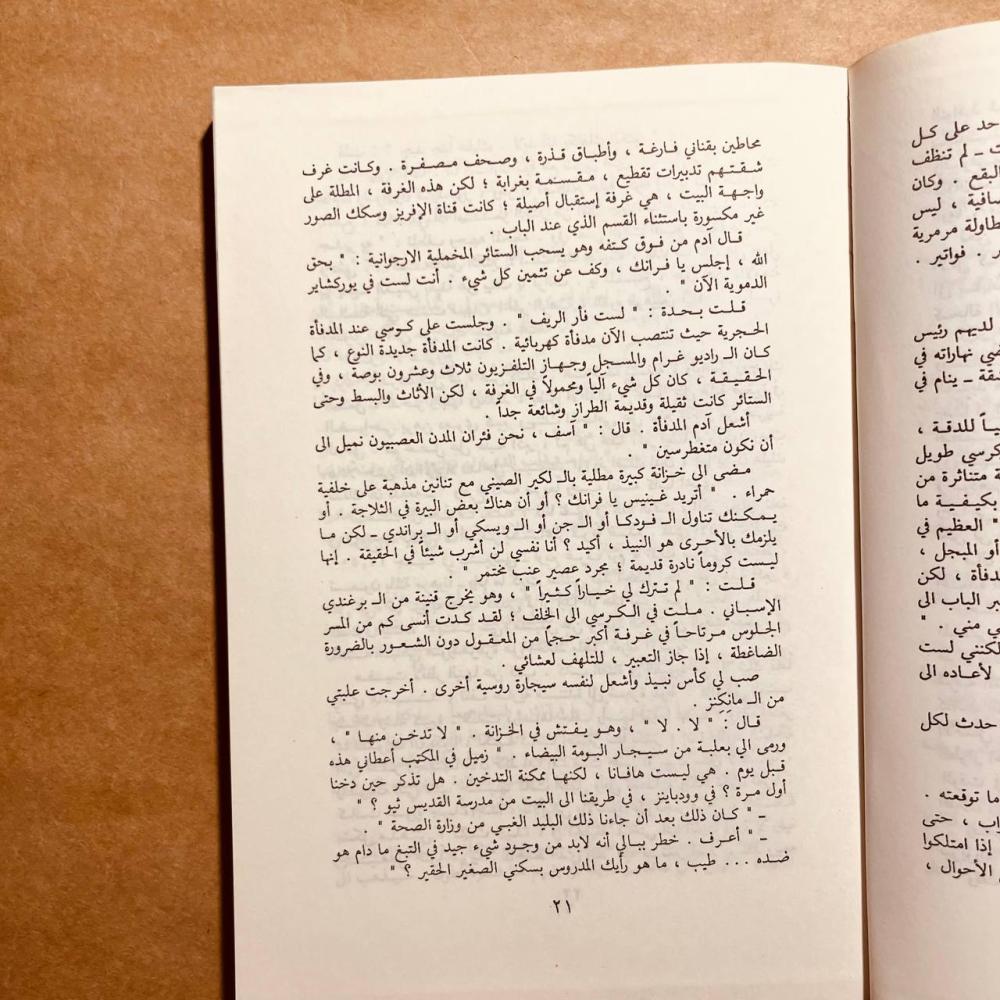 محاطين بقناني فارغة ، وأطباق قذرة ، وصحف مصفرة . وكانت غرف
شقتهم تدبيرات تقطيع ، مقسمة بغرابة ؛ لكن هذه الغرفة ، المطلة على
واجهة البيت ، هي غرفة إستقبال أصيلة ؛ كانت قناة الإفريز وسكك الصور
غير مكسورة باستثناء القسم الذي عند الباب .
قال آدم من فوق كتفه وهو يسحب الستائر المخملية الارجوانية : " بحق
الله ، إجلس يا فرانك ، وكف عن تثمين كل شيء . أنت لست في يوركشاير
الدموية الآن " .
قلت بحدة : " لست فأر الريف " . وجلست على كوسي عند المدفأة
الحجرية حيث تنتصب الآن مدفأة كهربائية . كانت المدفأة جديدة النوع ، كما
كان الـ راديو غرام والمسجل وجهاز التلفزيون ثلاث وعشرون بوصة ، وفي
الحقيقة ، كان كل شيء آلياً ومحمولاً في الغرفة ، لكن الأثاث والبسط وحتى
الستائر كانت ثقيلة وقديمة الطراز وشائعة جداً .
أشعل آدم المدفأة . قال : " آسف ، نحن فئران المدن العصبيون نميل الى
أن نكون متغطرسين " .
مضى الى خزانة كبيرة مطلية بالـ لكير الصيني مع تنانين مذهبة على خلفية
حمراء . " أتريد غينيس يا فرانك ؟ أو أن هناك بعض البيرة في الثلاجة . أو
يمكنك تناول الـ فودكا أو الـ جن أو الـ ويسكي أو الـ براندي ـ لكن ما
يلزمك بالأحرى هو النبيذ ، أكيد ؟ أنا نفسي لن أشرب شيئاً في الحقيقة . إنها
ليست كروماً نادرة قديمة ؛ مجرد عصير عنب مختمر " .
قلت : " لم تترك لي خياراً كثيراً " ، وهو يخرج قنينة من الـ برغندي
الإسباني . ملت في الكرسي الى الخلف ؛ لقد كدت أنسى كم من المسر
الجلوس مرتاحاً في غرفة أكبر حجماً من المعقول دون الشعور بالضرورة
الضاغطة ، إذا جاز التعبير ، للتلهف لعشائي .
صب لي كأس نبيذ وأشعل لنفسه سيجارة روسية أخرى . أخرجت علبتي
من الـ مانكِنز .
قال : " لا . لا " ، وهو يفتش في الخزانة . " لا تدخن منها " ،
ورمى الي بعلبة من سيجار البومة البيضاء . " زميل في المكتب أعطاني هذه
قبل يوم . هي ليست هافانا ، لكنها ممكنة التدخين . هل تذكر حين دخنا
أول مرة ؟ في وودباينز ، في طريقنا الى البيت من مدرسة القديس ثيو ؟ "
ـ " كان ذلك بعد أن جاءنا ذلك البليد الغبي من وزارة الصحة " .
ـ " أعرف . خطر ببالي أنه لابد من وجود شيء جيد في التبغ ما دام هو
ضده ... طيب ، ما هو رأيك المدروس بسكني الصغير الحقير ؟ "
٢١
حد على كل
ت ـ لم تنظف
البقع . وكان
سافية ، ليس
طاولة مرمرية
ر . فواتير .
لديهم رئيس
ضي نهاراته في
شقة ـ ينام في
ياً للدقة ،
كرسي طويل
ة متناثرة من
بكيفية ما
" العظيم في
أو المبجل ،
دفأة ، لكن
بر الباب الى
ي مني . "
لكنني لست
لأعاده الى
حدث لكل
ما توقعته .
اب ، حتى
إذا امتلكوا
الأحوال ،